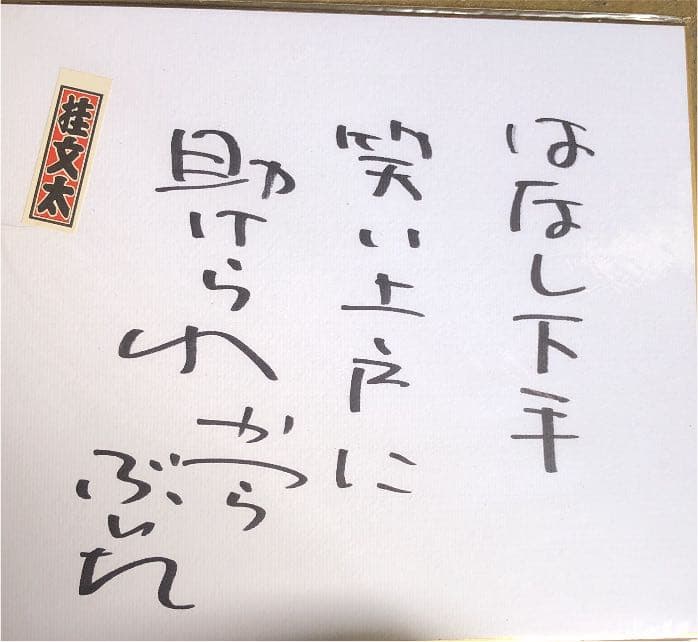 はなし下手
笑い上戸に
助けられ
かつら
ぶん太
桂文太